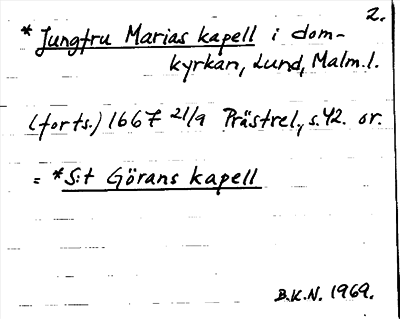 2.
*Jungfru Marias kapell i dom-
kyrkan, Lund, Malm.l.
(forts.) 1667 21/9 Prästrel., s.42. or.
= *S:t Görans kapell
B.K.N. 1969.